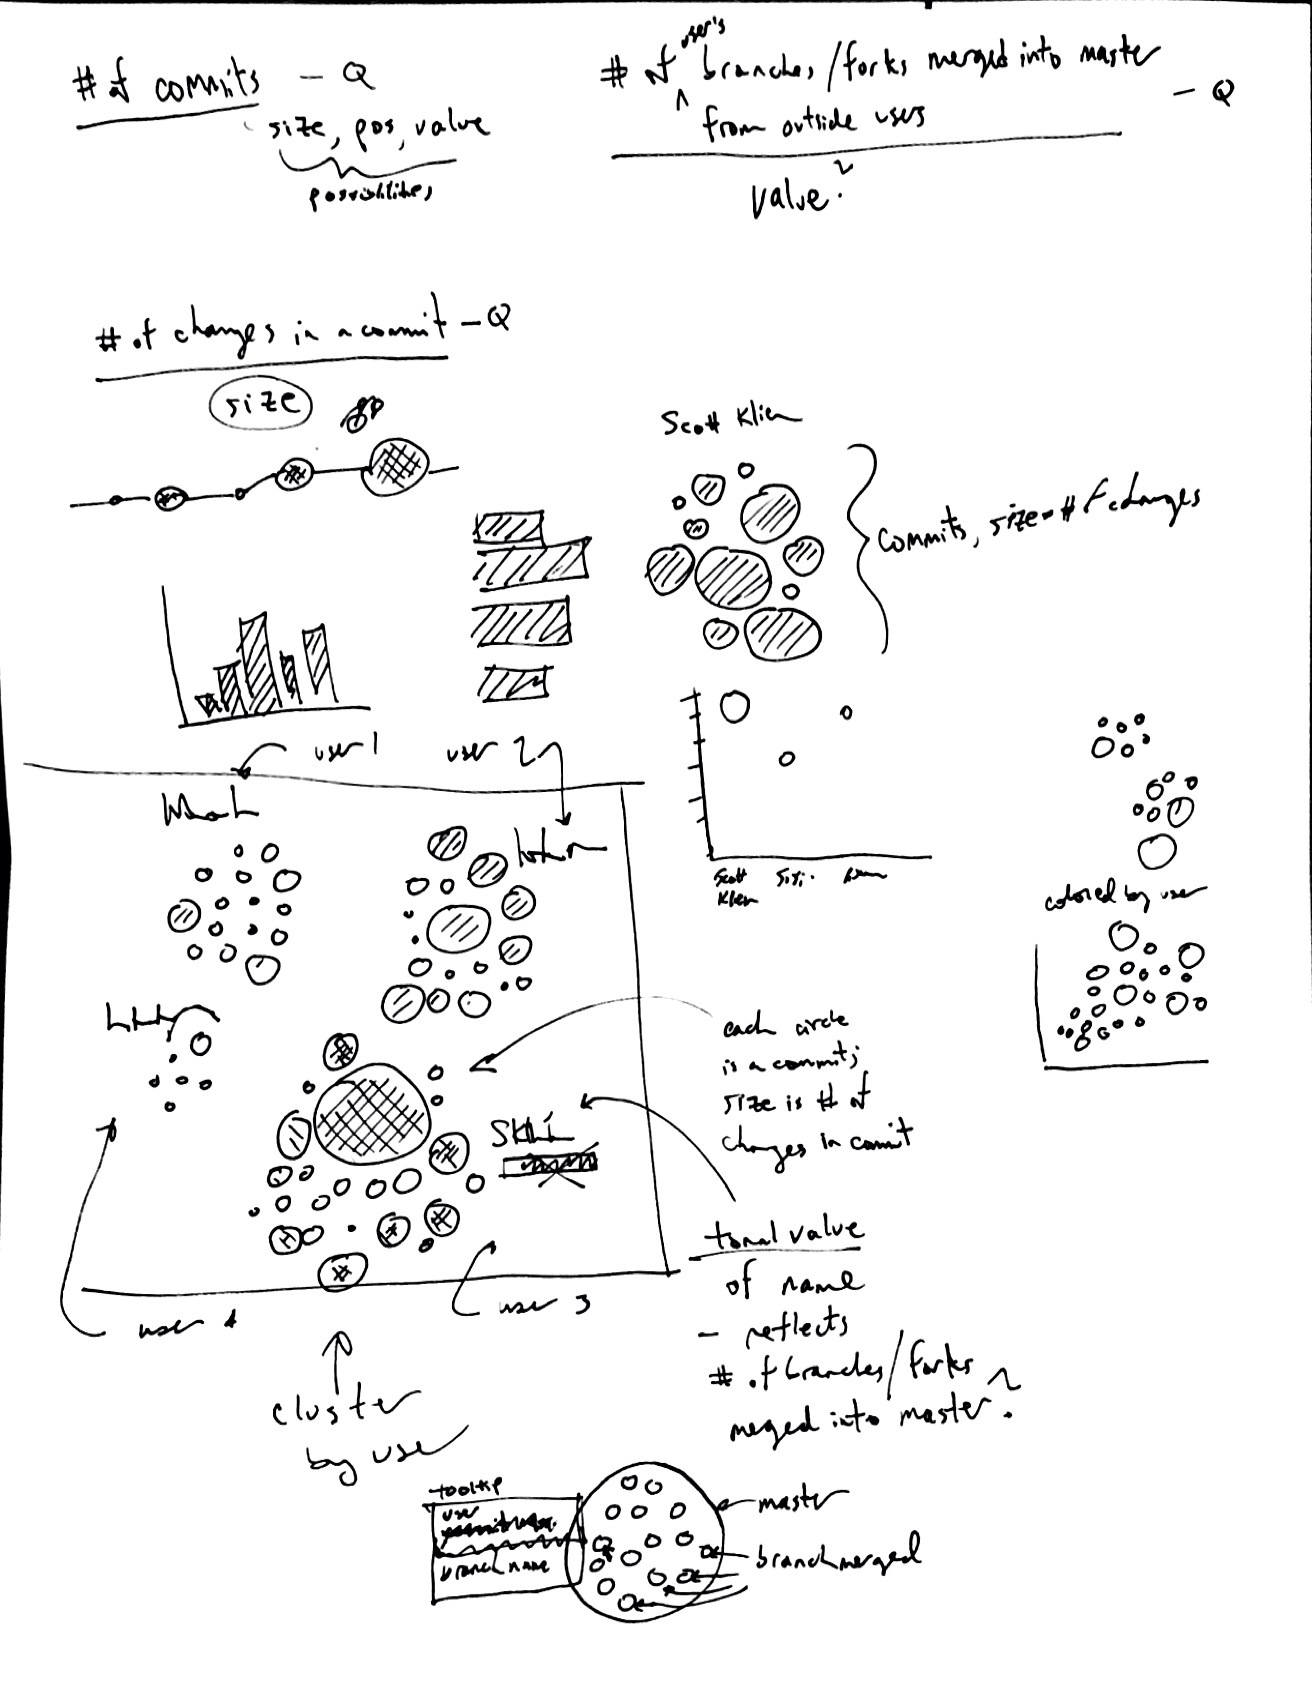 # of commits – Q
size, pos, value
possibilities
# of user's branches/forks merged into master
from outside users
– Q
value?
# of changes in a commit – Q
size
Scott Klien
commits, size = # of changes
user 1
user 2
Scott
Klien
colored by user
each circle
is a commit;
size is # of
changes in commit
SKLI
tonal value
of name
– reflects
# of branches/forks
merged into master?
user 4
user 3
cluster
by user
tooltip
user
branch name
master
branch merged